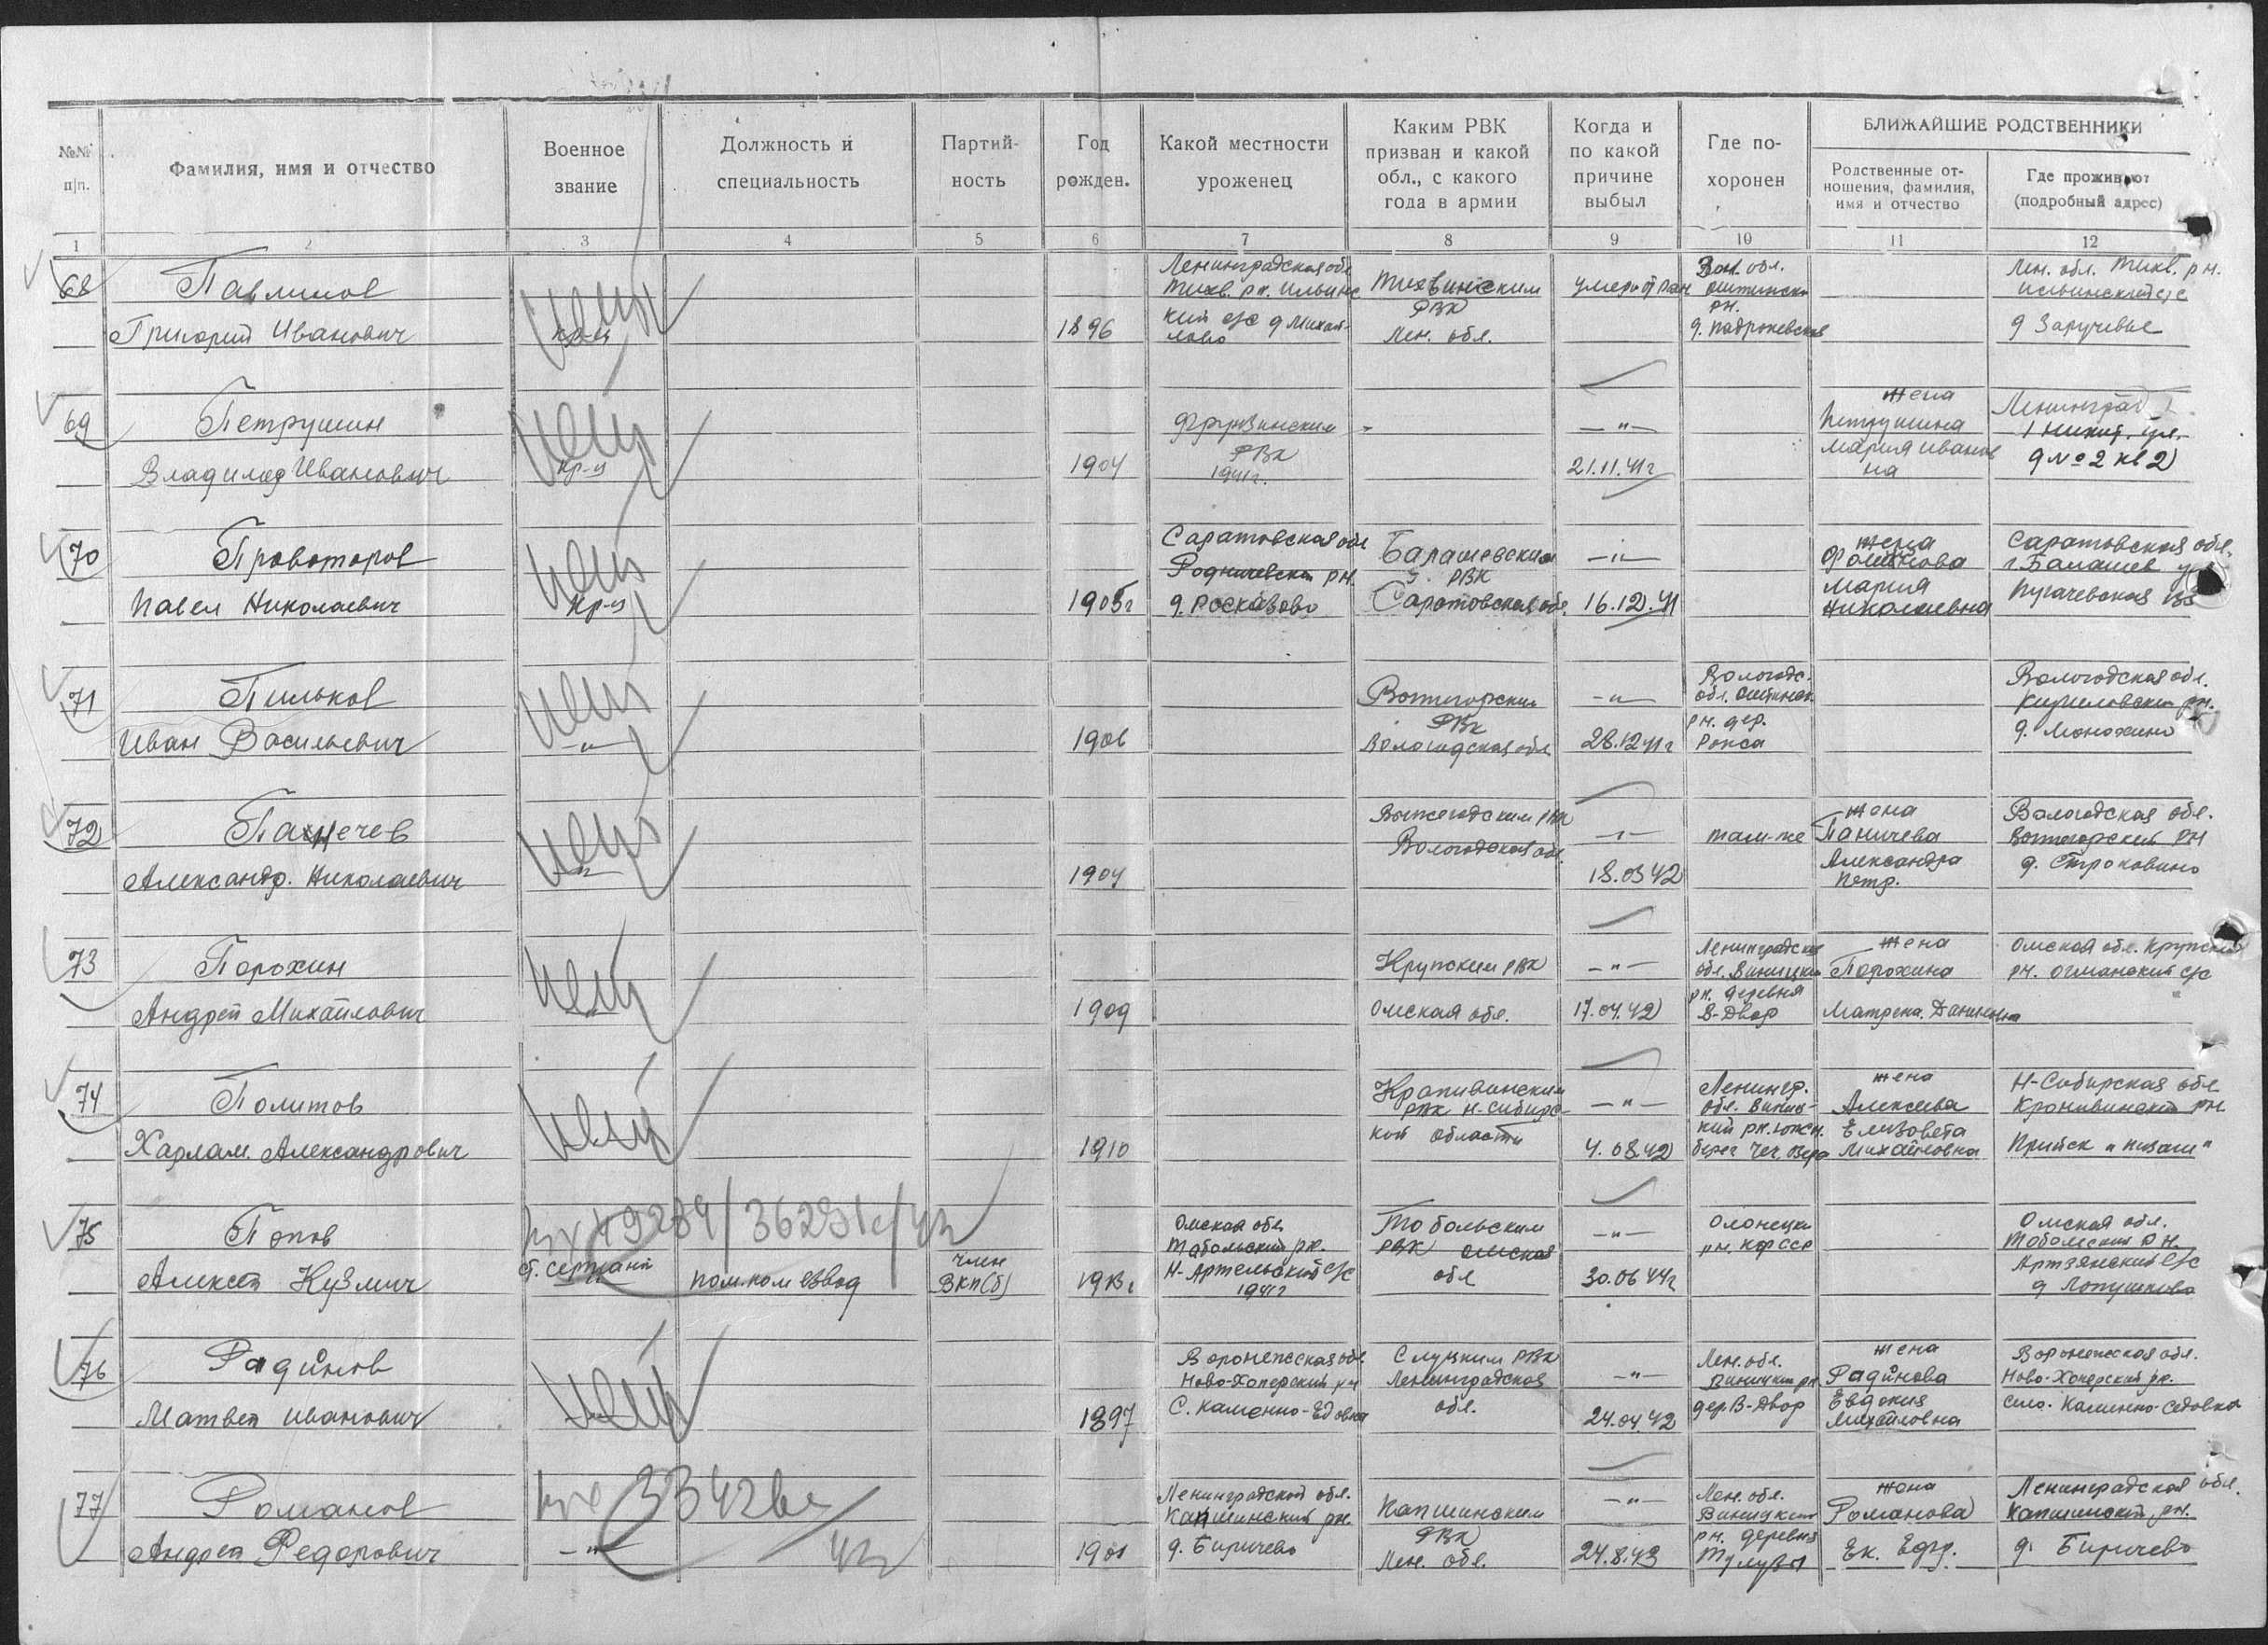 №№ п/п.
Фамилия, имя и отчество
Военное звание
Должность и специальность
Партий-ность
Год рожден.
Какой местности уроженец
Каким РВК призван и какой обл., с какого года в армии
Когда и по какой причине выбыл
Где по-хоронен
БЛИЖАЙШИЕ РОДСТВЕННИКИ
Родственные от-ношения, фамилия, имя и отчество
Где проживают (подробный адрес)
1 2 3 4 5 6 7 8 9 10 11 12
68
Павлинов
Григорий Иванович
кр-ец
1896
Ленинградская обл
Тихв. рн. Ильинс
кий с/с д Михай-
лово
Тихвинским
РВК
Лен. обл.
умер от ран
обл.
рн.
Лен. обл. Тихв. рн.
Ильинский с/с
д Заручевье
69
Петрушин
Владимир Иванович
кр-ец
1904
Фрунзенским
РВК
1941г.
-"-
21.11.41г
жена
Петрушина
Мария Иванов
на
Ленинград
д № 2 кв 2
70
Провоторов
Павел Николаевич
кр-ец
1905г
Саратовская обл
Родничевский рн.
Балашевским
г. РВК
Саратовская обл.
-"-
16.12.41
жена
Мария
Николаевна
Саратовская обл.
г. Балашев
Пугачевская
71
Пильков
Иван Васильевич
-"-
1906
Вытегорским
РВК
Вологодская обл
-"-
28.12.41г
Вологодс.
обл. Оштинск.
рн. дер.
Рокса
Вологодская обл.
Кирилловский рн.
72
Панечев
Александр. Николаевич
-"-
1904
РВК
Вологодская обл.
-"-
18.03.42
там-же
жена
Паничева
Александра
Петр.
Вологодская обл.
Вытегорский рн
д. Строковино
73
Порохин
Андрей Михайлович
-"-
1909
Крупским РВК
Омская обл.
-"-
17.04.42
Ленинградская
обл. Виницкий
рн. деревня
В-Двор
жена
Порохина
Матрена Даниловна
Омская обл. Крупский
74
Политов
Харлам Александрович
1910
Крапивинским
РВК Н-Сибирс-
кой области
-"-
4.08.42
Ленингр.
обл. Виниц-
кий рн. южн.
берег
жена
Алексеева
Елизовета
Михайловна
Н-Сибирская обл
Крапивинский рн.
Прииск
75
Попов
Алексей Кузмич
ст. сержант
49234/36231с/42
пом. ком взвод
член
ВКП(б)
1913г
Омская обл.
Тобольский рн.
Н-Артельский с/с
1941г
Тобольским
РВК Омская
обл
-"-
30.06.44г
Олонецки
рн. КФССР
Омская обл.
Тобольский рн.
д Лопушково
76
Радинов
Матвей Иванович
1897
Воронежская обл.
Ново-Хоперский рн
с. Каменно-
Слуцким РВК
Ленинградская
обл.
-"-
24.04.42
Лен. обл.
Виницкий рн
дер. В-Двор
жена
Радинова
Евдокия
Михайловна
Воронежская обл.
Ново-Хоперский рн.
село. Каменно-Садовка
77
Романов
Андрей Федорович
-"-
1901
Ленинградской обл.
Капшинский рн.
д. Биричево
Капшинским
РВК
Лен. обл.
-"-
24.8.43
Лен. обл.
Виницкий
рн. деревня
жена
Романова
Ек. Егр.
Ленинградская обл.
Капшинский рн.
д. Биричево